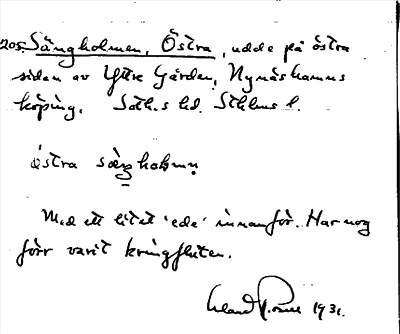 205. Sängholmen, Östra, udde på östra
sidan av Yttre Gården, Nynäshamns
köping. Soth.s hd. Sthlms l.
östra sängholmn
Med ett litet 'ede' innanför. Har nog
förr varit kringfluten.
1931.